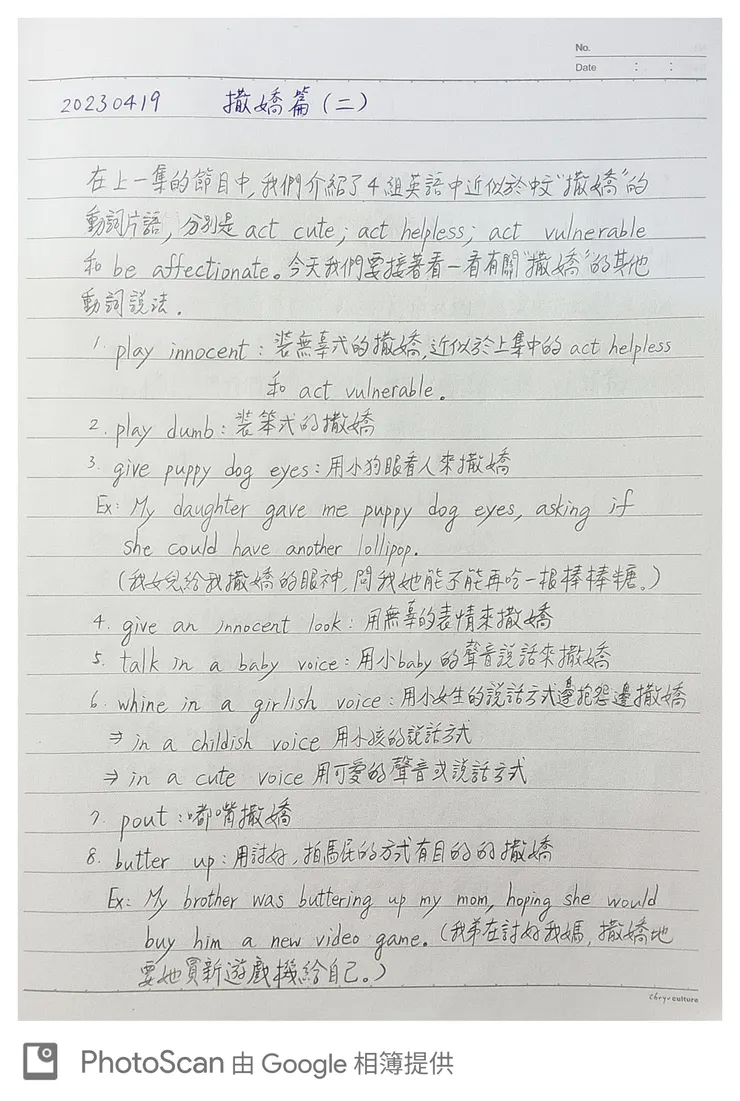 No.
Date : :
20230419 撒嬌篇(二)
在上一集的節目中,我們介紹了4組英語中近似於中文"撒嬌"的
動詞片語,分別是act cute; act helpless; act vulnerable
和 be affectionate。今天我們要接著看一看有關"撒嬌"的其他
動詞說法.
1. play innocent:裝無辜式的撒嬌,近似於上集中的act helpless
和 act vulnerable.
2. play dumb:裝笨式的撒嬌
3. give puppy dog eyes:用小狗眼看人來撒嬌
Ex: My daughter gave me puppy dog eyes, asking if
she could have another lollipop.
(我女兒給我撒嬌的眼神,問我她能不能再吃一根棒棒糖。)
4. give an innocent look:用無辜的表情來撒嬌
5. talk in a baby voice:用小baby的聲音說話來撒嬌
6. whine in a girlish voice:用小女生的說話方式邊抱怨邊撒嬌
⇒ in a childish voice 用小孩的說話方式
⇒ in a cute voice 用可愛的聲音或說話方式
7. pout:嘟嘴撒嬌
8. butter up:用討好,拍馬屁的方式有目的的撒嬌
Ex: My brother was buttering up my mom, hoping she would
buy him a new video game.(我弟在討好我媽,撒嬌地
要她買新遊戲機給自己。)
Chryu culture
PhotoScan 由 Google 相簿提供